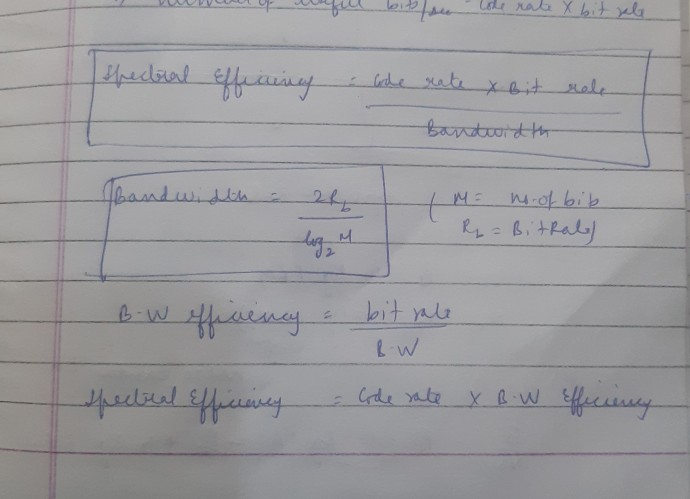 number of useful bit/sec = Code rate X bit rate
Spectral Efficiency = Code rate X Bit rate
Bandwidth
Bandwidth = 2Rb ( M = no. of bits
log2M Rb = Bit Rate)
B.W efficiency = bit rate
B.W
Spectral Efficiency = Code rate X B.W Efficiency